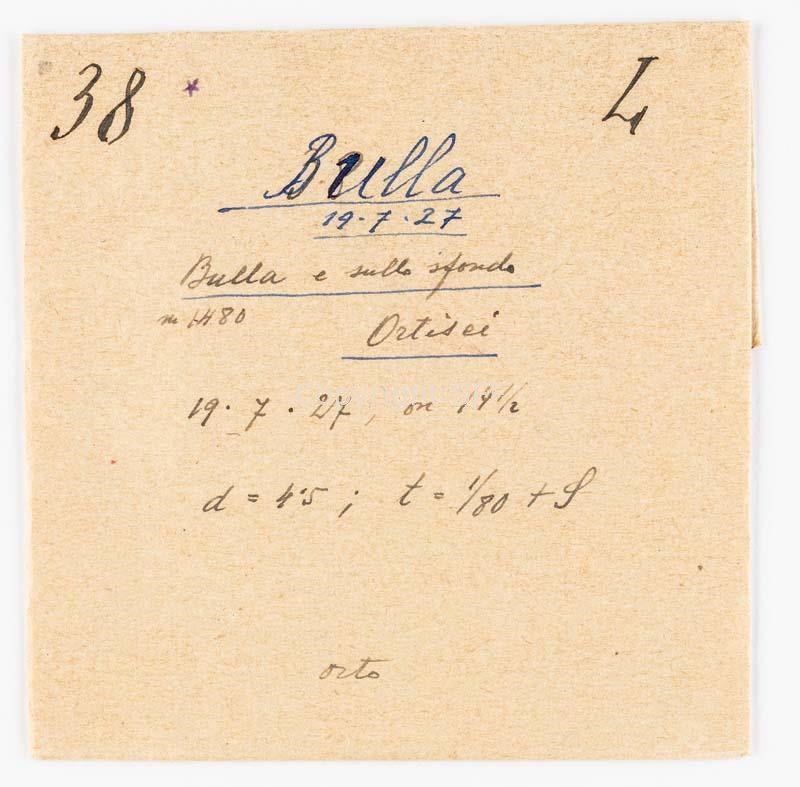 38 * L
Bulla
19·7·27
Bulla e sullo sfondo
m 1480
Ortisei
19·7·27, ore 14½
d = 4'5 ; t = 1/80 + S
orto